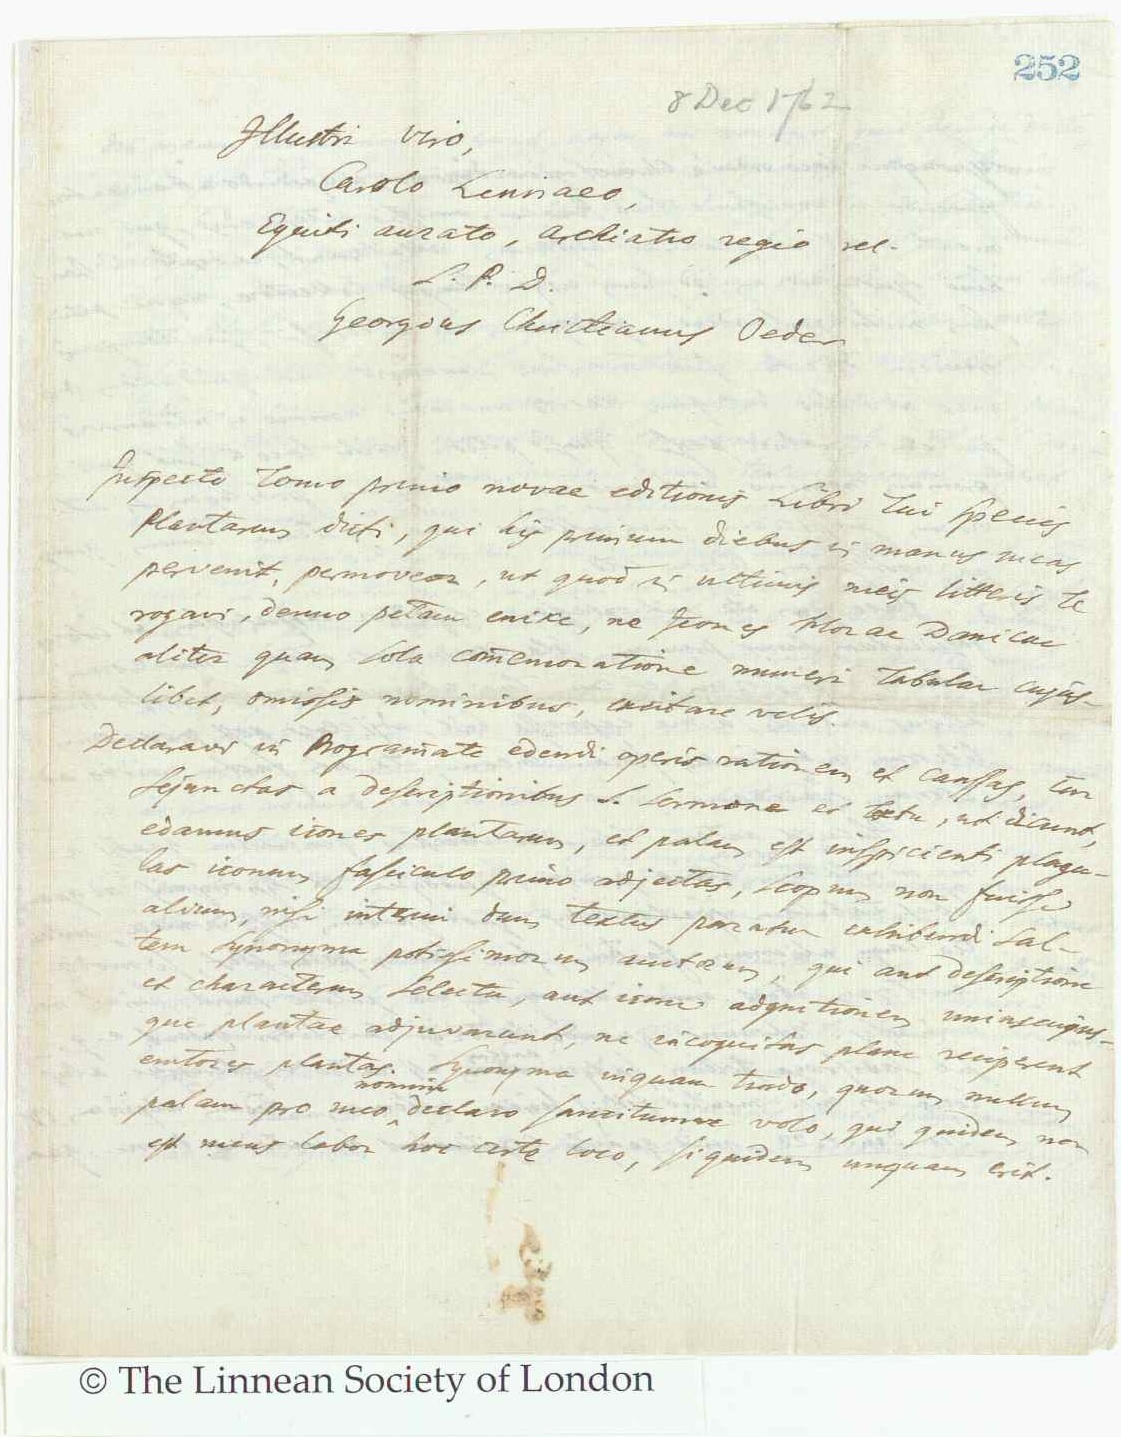 252
8 Dec 1762
Illustri Viro,
Carolo Linnaeo,
Equiti aurato, Archiatro regio rel.
S. P. D.
Georgius Christianus Oeder
Inspecto Tomo primo novae editionis Libri Tui Species
Plantarum dicti, qui his primum diebus in manus meas
pervenit, permoveor, ut quod in ultimis meis litteris te
rogavi, denuo petam enixe, ne Icones Florae Danicae
aliter quam sola commemoratione numeri Tabulae cujus-
libet, omissis nominibus, excitare velis.
Declaravi in Programate edendi operis rationem et caussas, cur
sejunctas a descriptionibus s. sermone et textu, ut dicunt,
edamus icones plantarum, et palam est inspicienti plagu-
las iconum fasciculo primo adjectas, scopum non fuisse
alium, nisi interim dum textus paratur exhibendi sal-
tem synonyma potissimorum autorum, qui aut descriptione
et charactere selecta, aut icone adgnitionem uniuscujus-
que plantae adjuvarunt, ne incognitas plane reciperent
emtores plantas. Synonyma inquam trado, quorum nullum
palam pro meo nomine declaro sancitumve volo, qui quidem non
est meus labor hoc certe loco, siquidem unquam erit.
© The Linnean Society of London